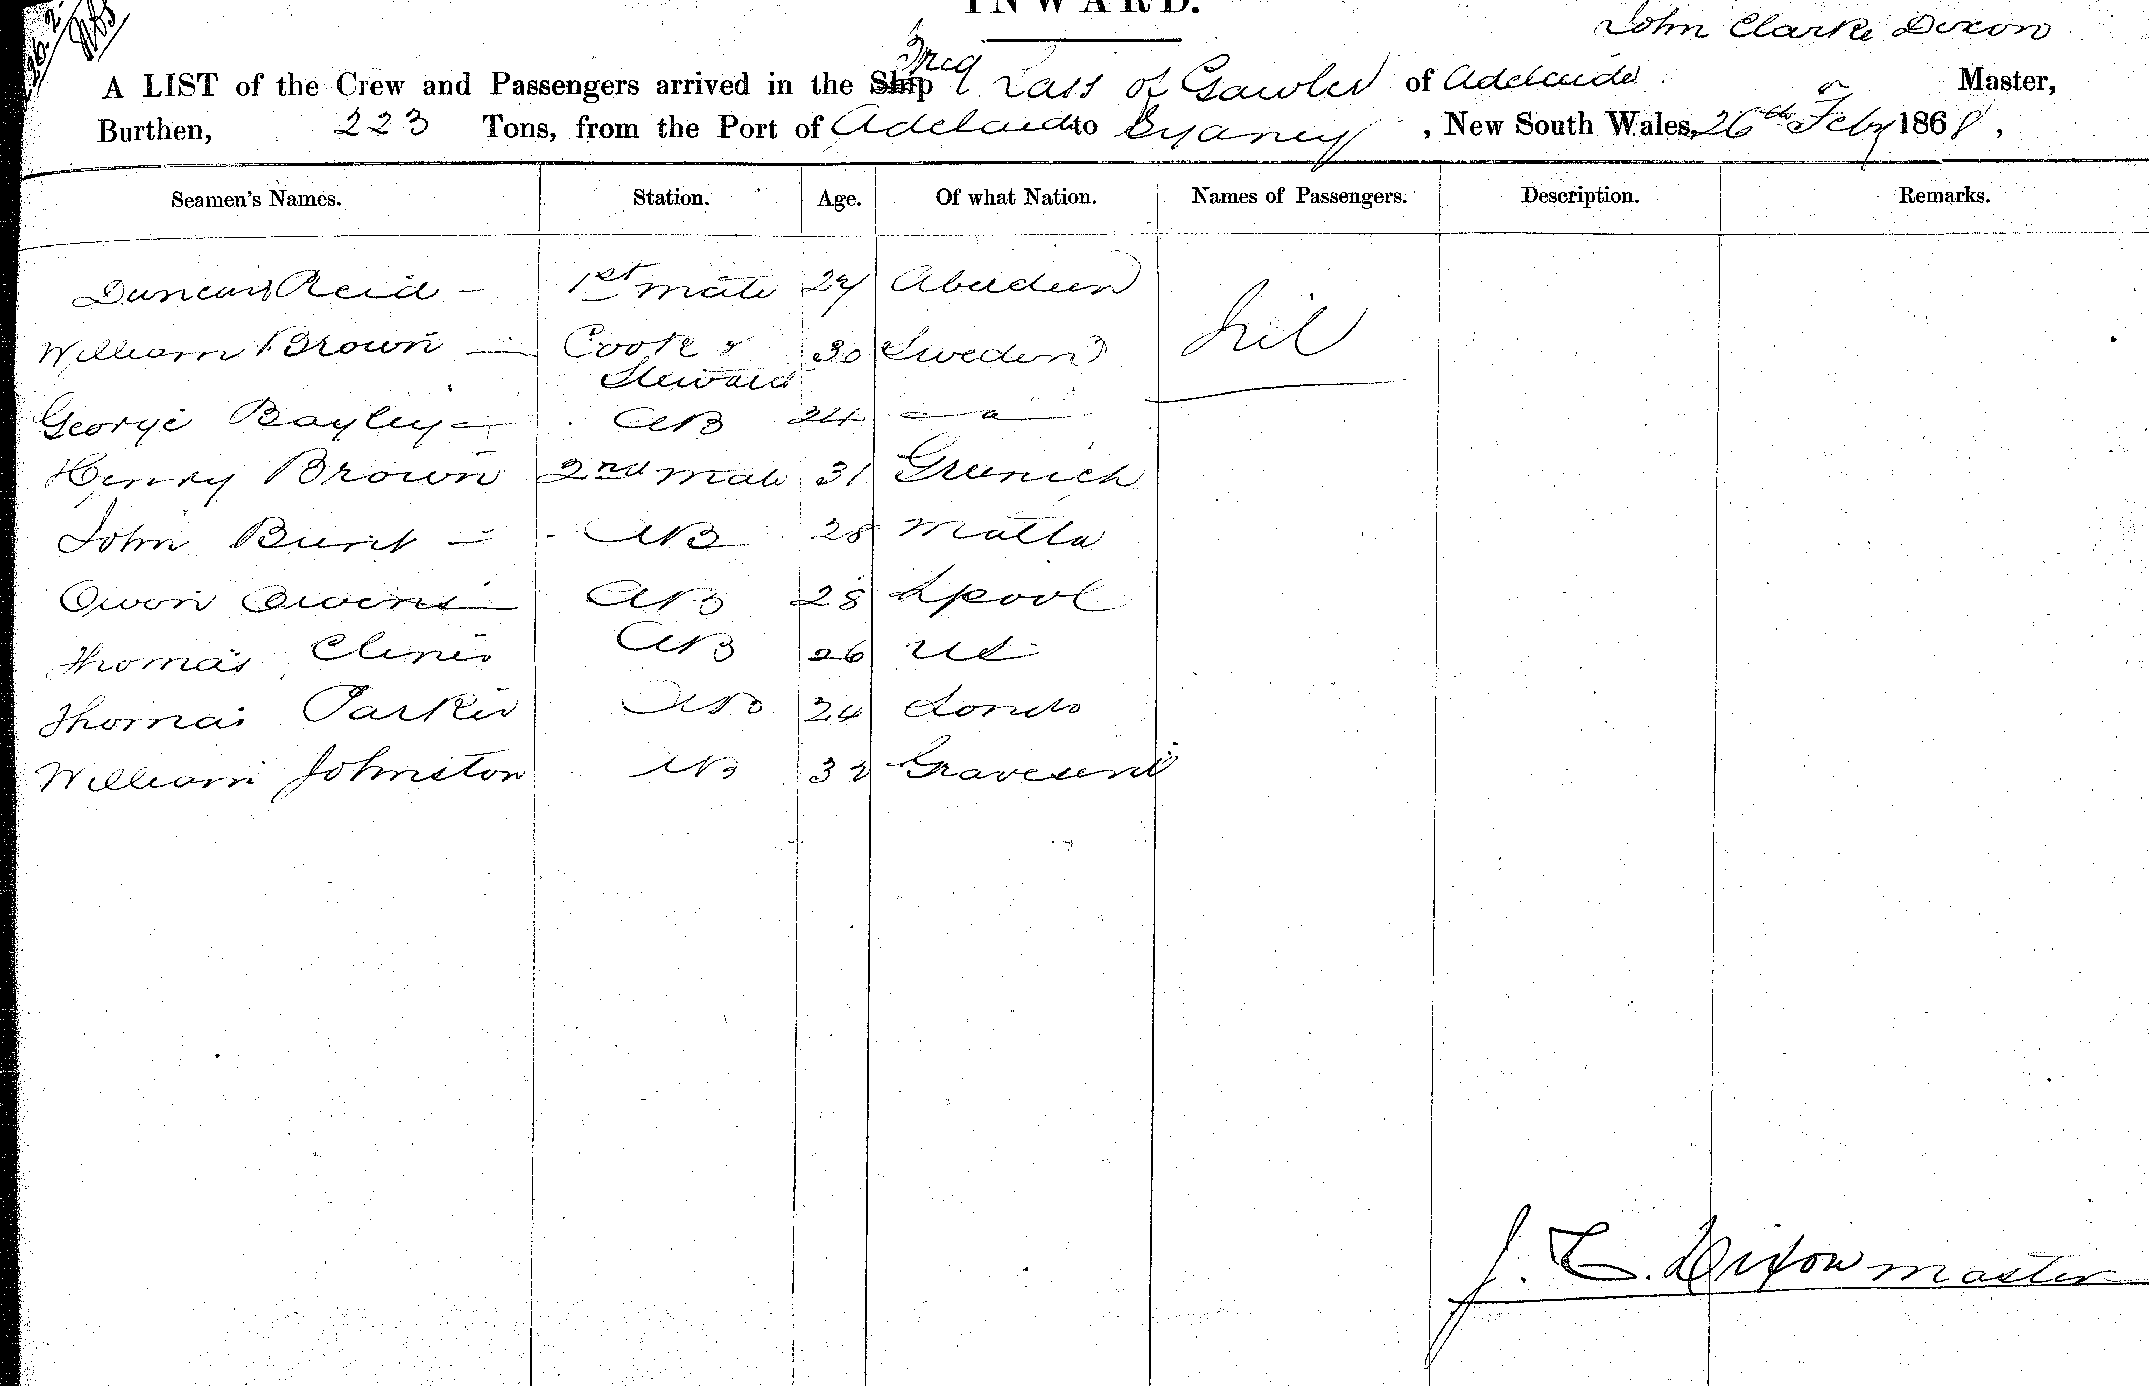 INWARD.
John Clarke Dixon
A LIST of the Crew and Passengers arrived in the Ship Brig Lass of Gawler of Adelaide Master,
Burthen, 223 Tons, from the Port of Adelaide to Sydney, New South Wales, 26th Feby 1868,
Seamen's Names. Station. Age. Of what Nation. Names of Passengers. Description. Remarks.
Duncan Reid - 1st mate 27 Aberdeen
William Brown - Cook & 30 Sweden Nil
Steward
George Bayley - AB 24 — " —
Henry Brown 2nd mate 31 Greenich
John Burt - AB 28 Malta
Owen Owens AB 28 Lpool
Thomas AB 26 US
Thomas Parker AB 24 London
William Johnston AB 32 Gravesend
J. C. Dixon master